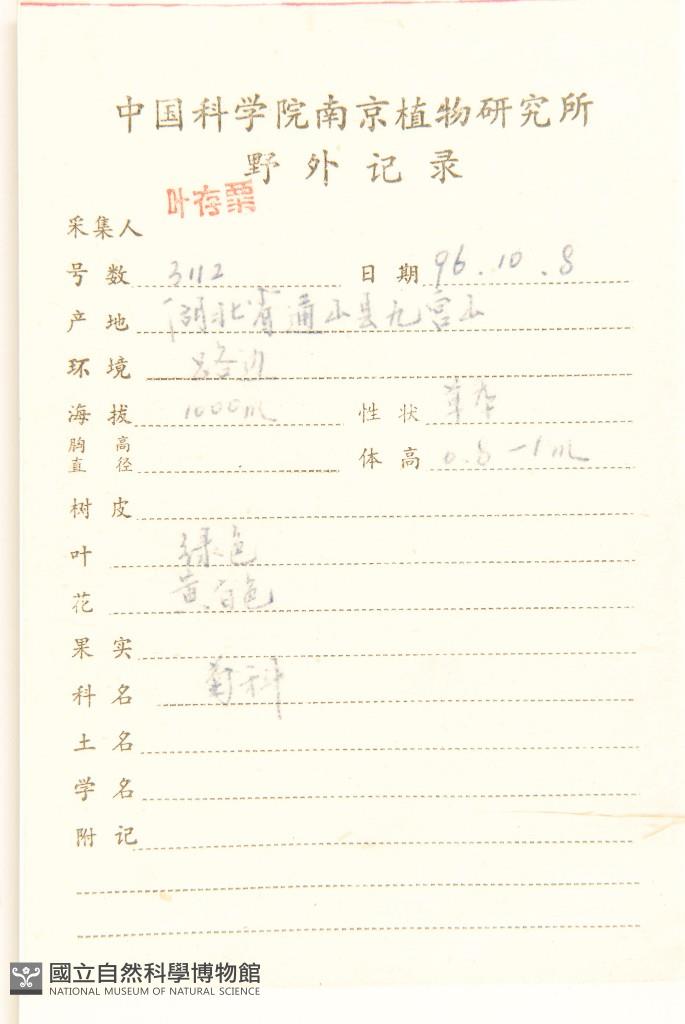 中国科学院南京植物研究所
野外记录
采集人 叶存粟
号数 3112 日期 96.10.8
产地 湖北省通山县九宫山
环境 路边
海拔 1000m 性状 草本
胸高直径 体高 0.8-1m
树皮
叶 绿色
花 黄白色
果实
科名 菊科
土名
学名
附记
國立自然科學博物館
NATIONAL MUSEUM OF NATURAL SCIENCE